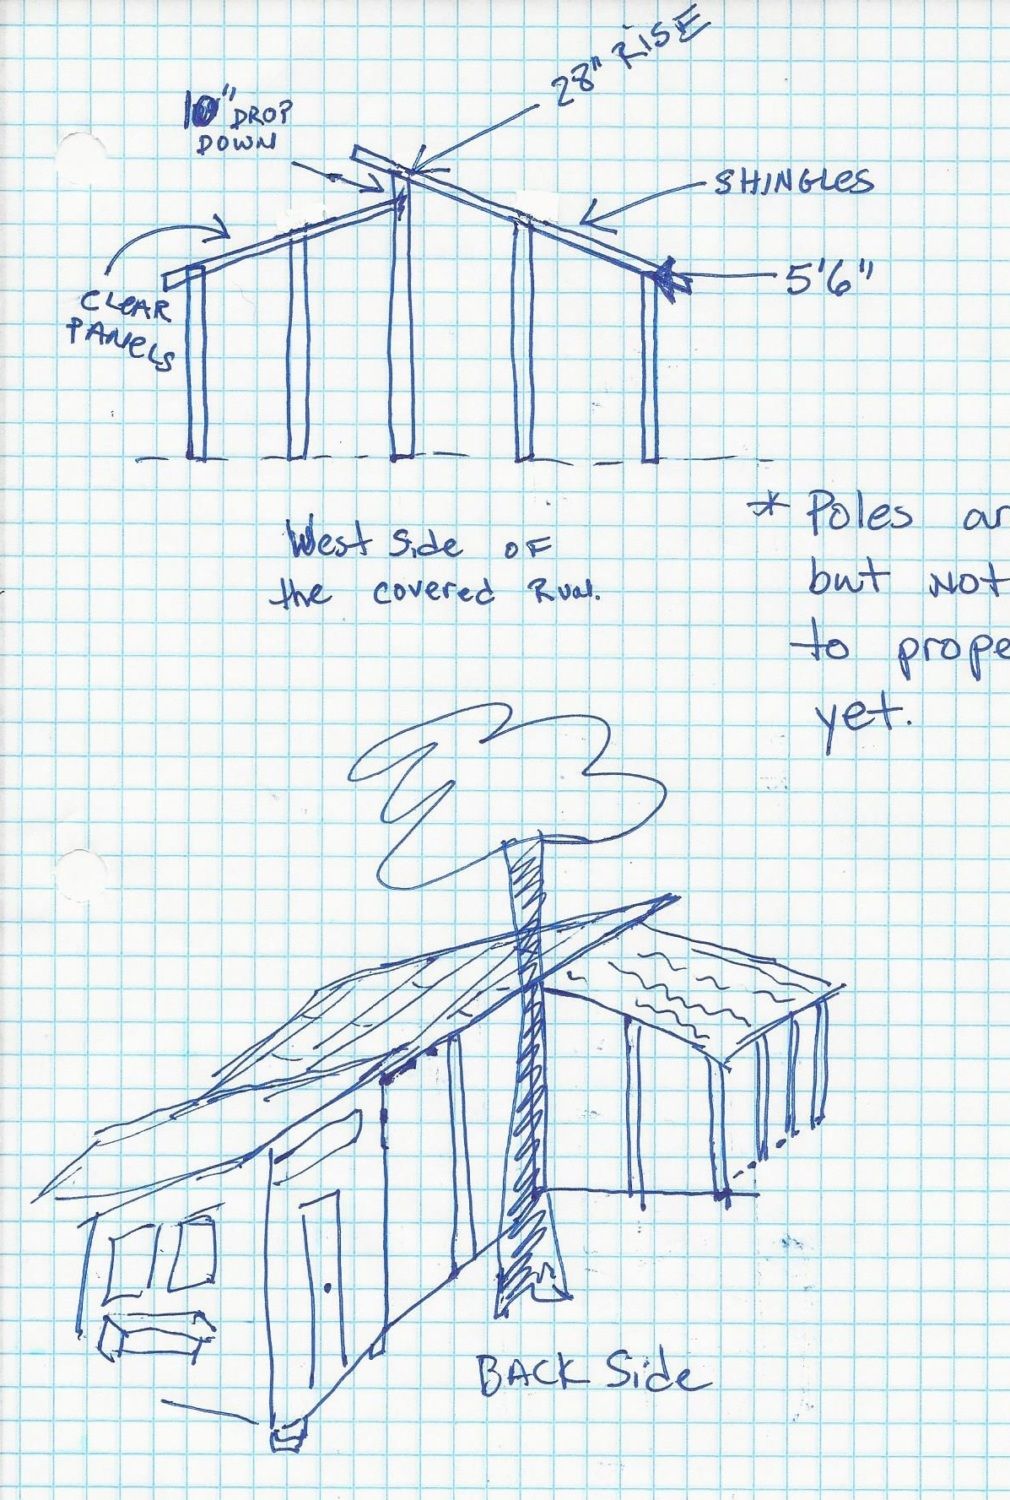 28" RISE
10" DROP
DOWN
SHINGLES
5'6"
CLEAR
PANELS
West Side OF
the covered Run.
* Poles ar
but not
to prope
yet.
BACK Side